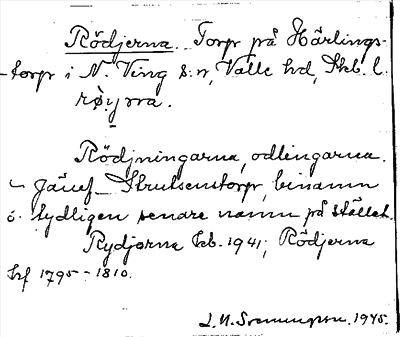 Rödjerna. Torp på Härlings-
torp i N. Ving s:n, Valle hd, Skb. l.
Rödjningarna, odlingarna.
Jämf. Strutsenstorp, binamn
o. tydligen senare namn på stället.
Rydjorna kb. 1941; Rödjerna
hfl 1795-1810.
L. N. Svenungson. 1945.